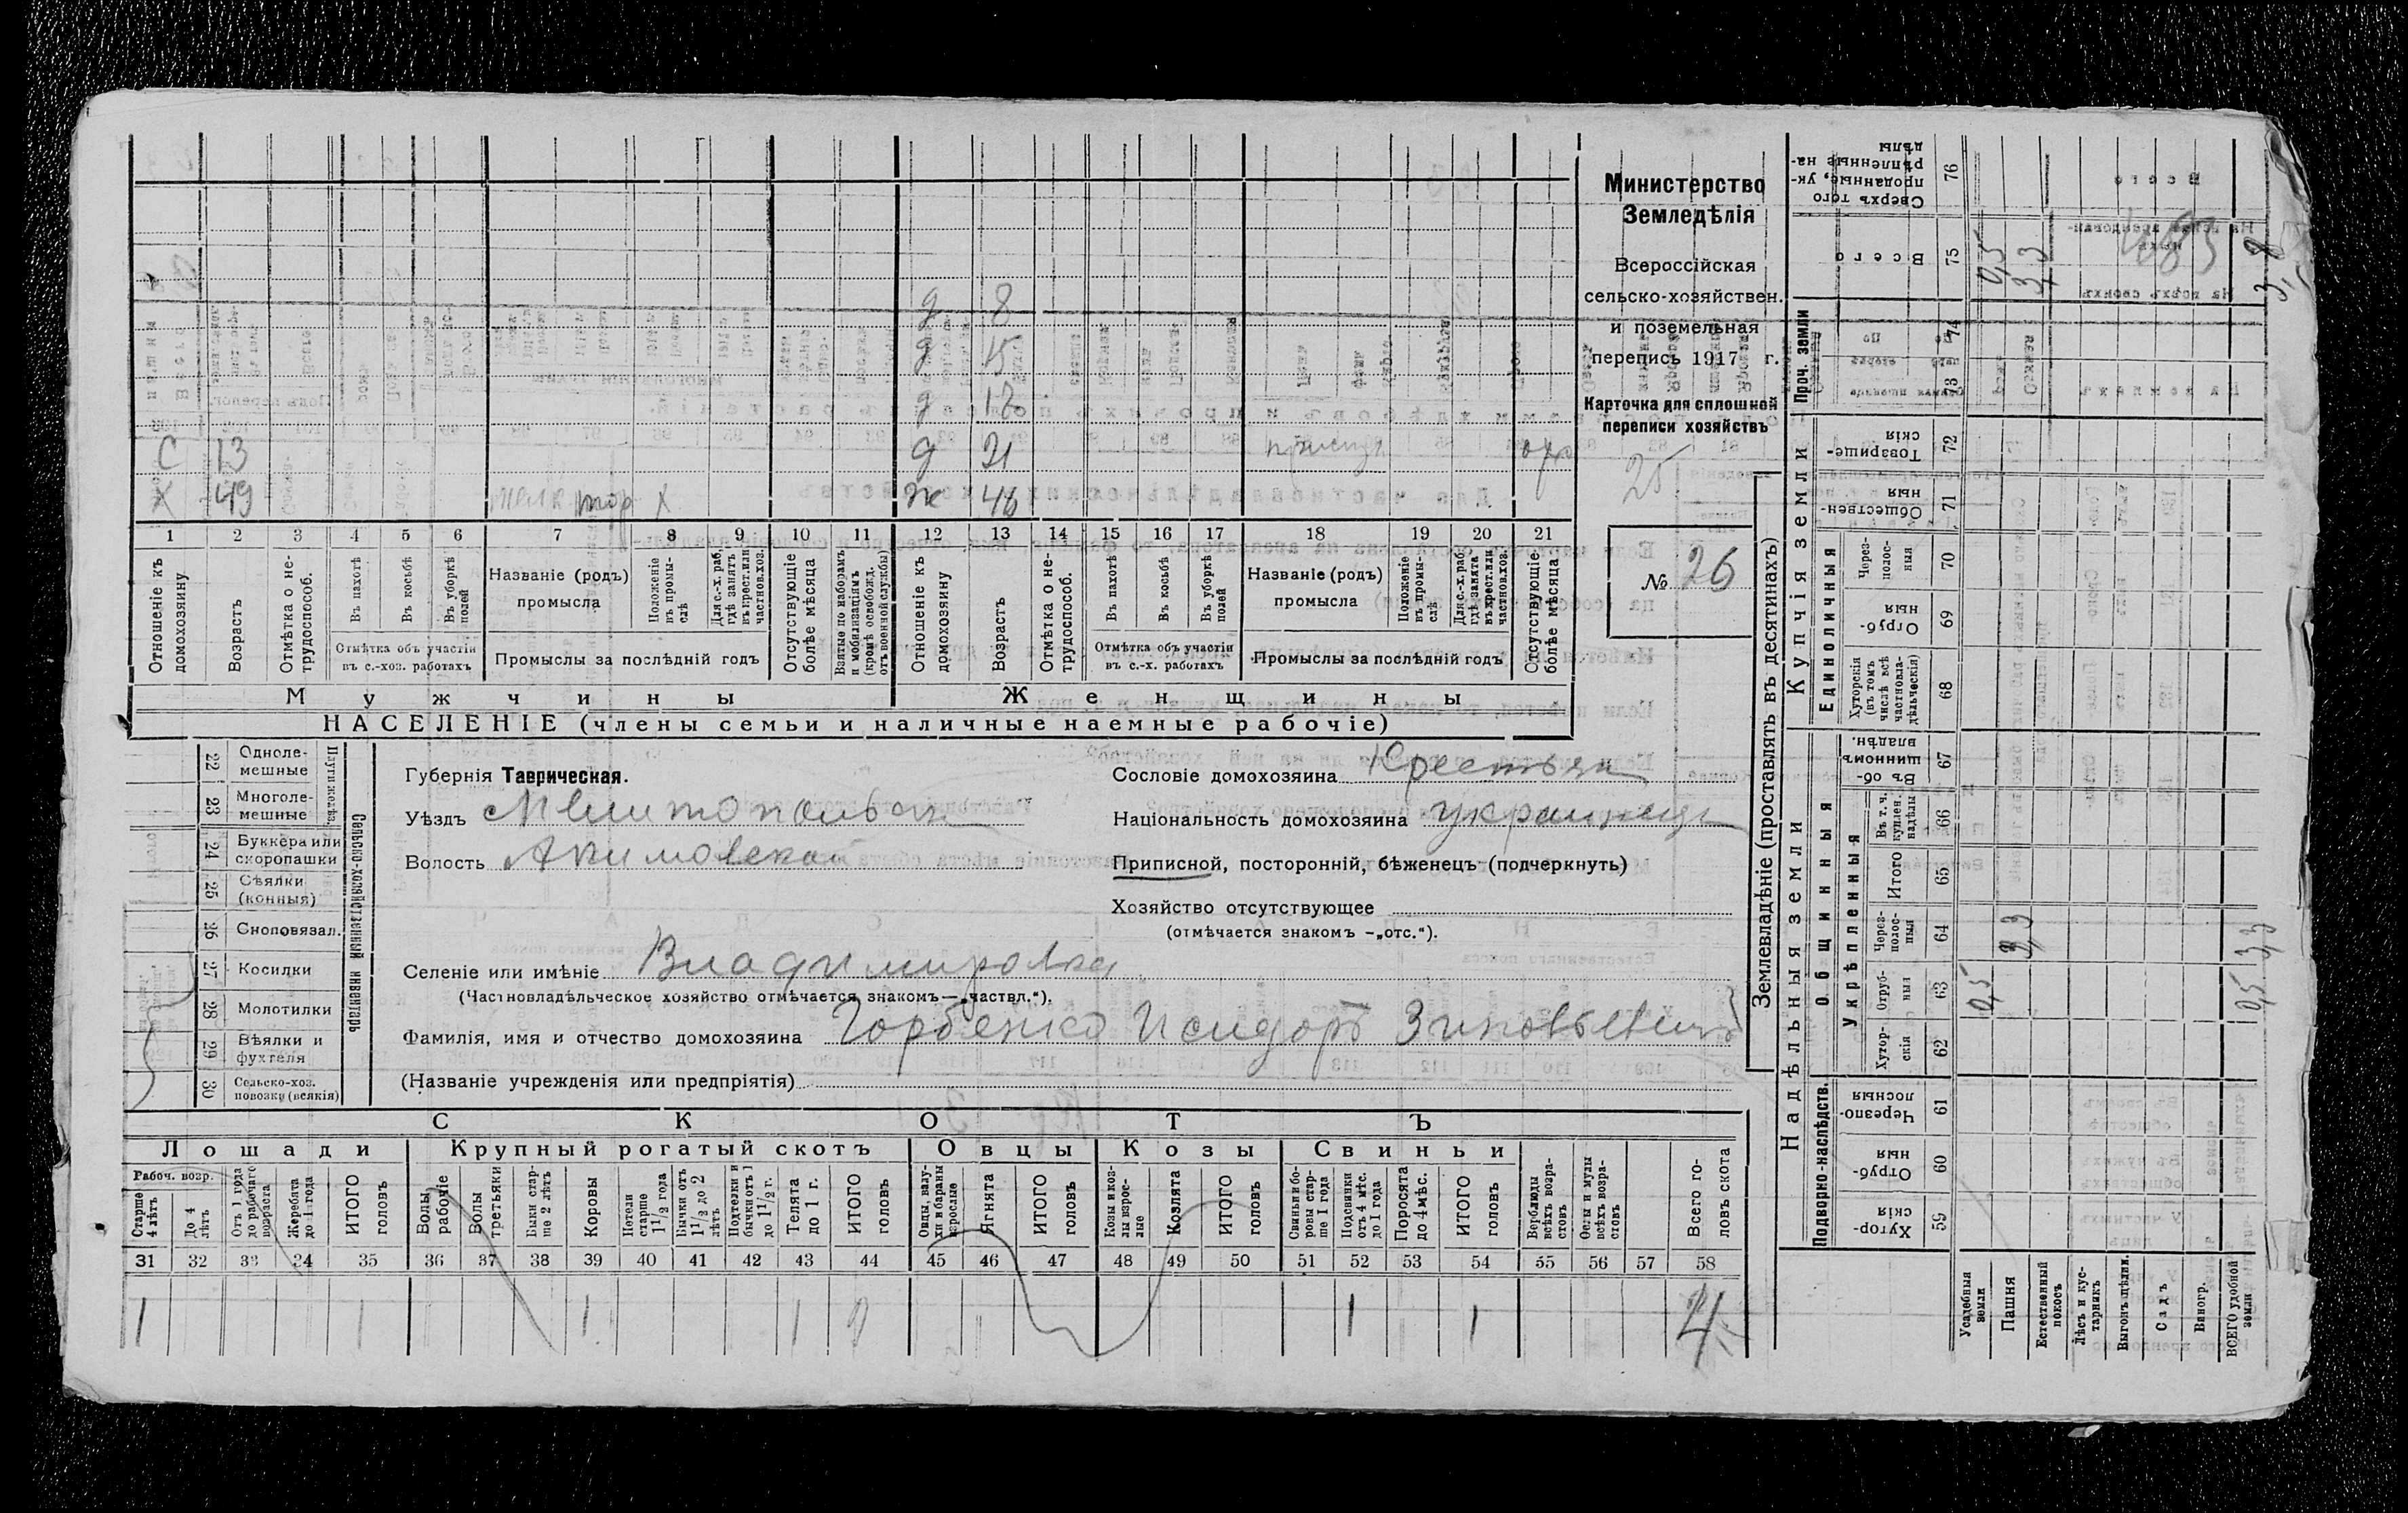 Министерство
Земледѣлія
Всероссійская
сельско-хозяйствен.
и поземельная
перепись 1917 г.
Карточка для сплошной
переписи хозяйствъ
25
№ 26
д 8
д 15
д 18
С 13 д 21
Х 49 Х Ж 48
1 2 3 4 5 6 7 8 9 10 11 12 13 14 15 16 17 18 19 20 21
Отношеніе къ домохозяину
Возрастъ
Отмѣтка о не-трудоспособ.
Въ пахотѣ
Въ косьбѣ
Въ уборкѣ полей
Отмѣтка объ участіи въ с.-хоз. работахъ
Названіе (родъ) промысла
Положеніе въ промы-слѣ
Для с.-х. раб. гдѣ занятъ въ крест. или частнов. хоз.
Промыслы за послѣдній годъ
Отсутствующіе болѣе мѣсяца
Взятые по наборамъ и мобилизаціямъ (кромѣ освобожд. отъ военной службы)
Отношеніе къ домохозяину
Возрастъ
Отмѣтка о не-трудоспособ.
Въ пахотѣ
Въ косьбѣ
Въ уборкѣ полей
Отмѣтка объ участіи въ с.-х. работахъ
Названіе (родъ) промысла
Положеніе въ промы-слѣ
Для с.-х. раб. гдѣ занята въ крест. или частнов. хоз.
Промыслы за послѣдній годъ
Отсутствующіе болѣе мѣсяца
Мужчины Женщины
НАСЕЛЕНІЕ (члены семьи и наличные наемные рабочіе)
22 Одноле-мешные
23 Многоле-мешные
24 Буккера или скоропашки
25 Сѣялки (конныя)
26 Сноповязал.
27 Косилки
28 Молотилки
29 Вѣялки и фухтеля
30 Сельско-хоз. повозки (всякія)
Сельско-хозяйственный инвентарь
Губернія Таврическая.
Уѣздъ Мелитопольск
Волость Акимовская
Сословіе домохозяина Крестьян
Національность домохозяина украинец
Приписной, посторонній, бѣженецъ (подчеркнуть)
Хозяйство отсутствующее
(отмѣчается знакомъ -„отс.“).
Селеніе или имѣніе Владимировка
(Частновладѣльческое хозяйство отмѣчается знакомъ—„частвл.“).
Фамилія, имя и отчество домохозяина Горбенко Исидоръ Зиновьевичъ
(Названіе учрежденія или предпріятія)
СКОТЪ
Лошади Крупный рогатый скотъ Овцы Козы Свиньи
Рабоч. возр.
Старше 4 лѣтъ
До 4 лѣтъ
Отъ 1 года до рабочаго возраста
Жеребята до 1 года
ИТОГО головъ
Волы рабочіе
Волы третьяки
Быки стар-ше 2 лѣтъ
Коровы
Нетели старше 1 1/2 года
Бычки отъ 1 1/2 до 2 лѣтъ
Подтелки и бычки отъ 1 до 1 1/2 г.
Телята до 1 г.
ИТОГО головъ
Овцы, валу-хи и бараны взрослые
Ягнята
ИТОГО головъ
Козы и коз-лы взрос-лые
Козлята
ИТОГО головъ
Свиньи и бо-ровы стар-ше 1 года
Подсвинки отъ 4 мѣс. до 1 года
Поросята до 4 мѣс.
ИТОГО головъ
Верблюды всѣхъ возра-стовъ
Ослы и мулы всѣхъ возра-стовъ
Всего го-ловъ скота
31 32 33 34 35 36 37 38 39 40 41 42 43 44 45 46 47 48 49 50 51 52 53 54 55 56 57 58
1 1 1 1 2 1 1 4
Землевладѣніе (проставлять въ десятинахъ)
Надѣльныя земли
Купчія земли
Проч. земли
Подворно-наслѣдств.
Общинныя
Укрѣпленныя
Единоличныя
Хутор-скія 59
Отруб-ныя 60
Черезпо-лосныя 61
Хутор-скія 62
Отруб-ныя 63
Через-полос-ныя 64
Итого 65
Въ т. ч. куплен. надѣлы 66
Въ об-щинномъ владѣн. 67
Хуторскія (въ томъ числѣ всѣ частновла-дѣльческія) 68
Отруб-ныя 69
Через-полос-ныя 70
Обществен-ныя 71
Товарище-скія 72
73
74
Всего 75
Сверхъ того проданные, ук-рѣпленные на-дѣлы 76
Усадебныя земли 0,5 0,5
Пашня 3,3 3,3
Естественный покосъ
Лѣсъ и кус-тарникъ
Выгонъ цѣлин.
Садъ
Виногр.
ВСЕГО удобной земли 0,5 3,3 3,8